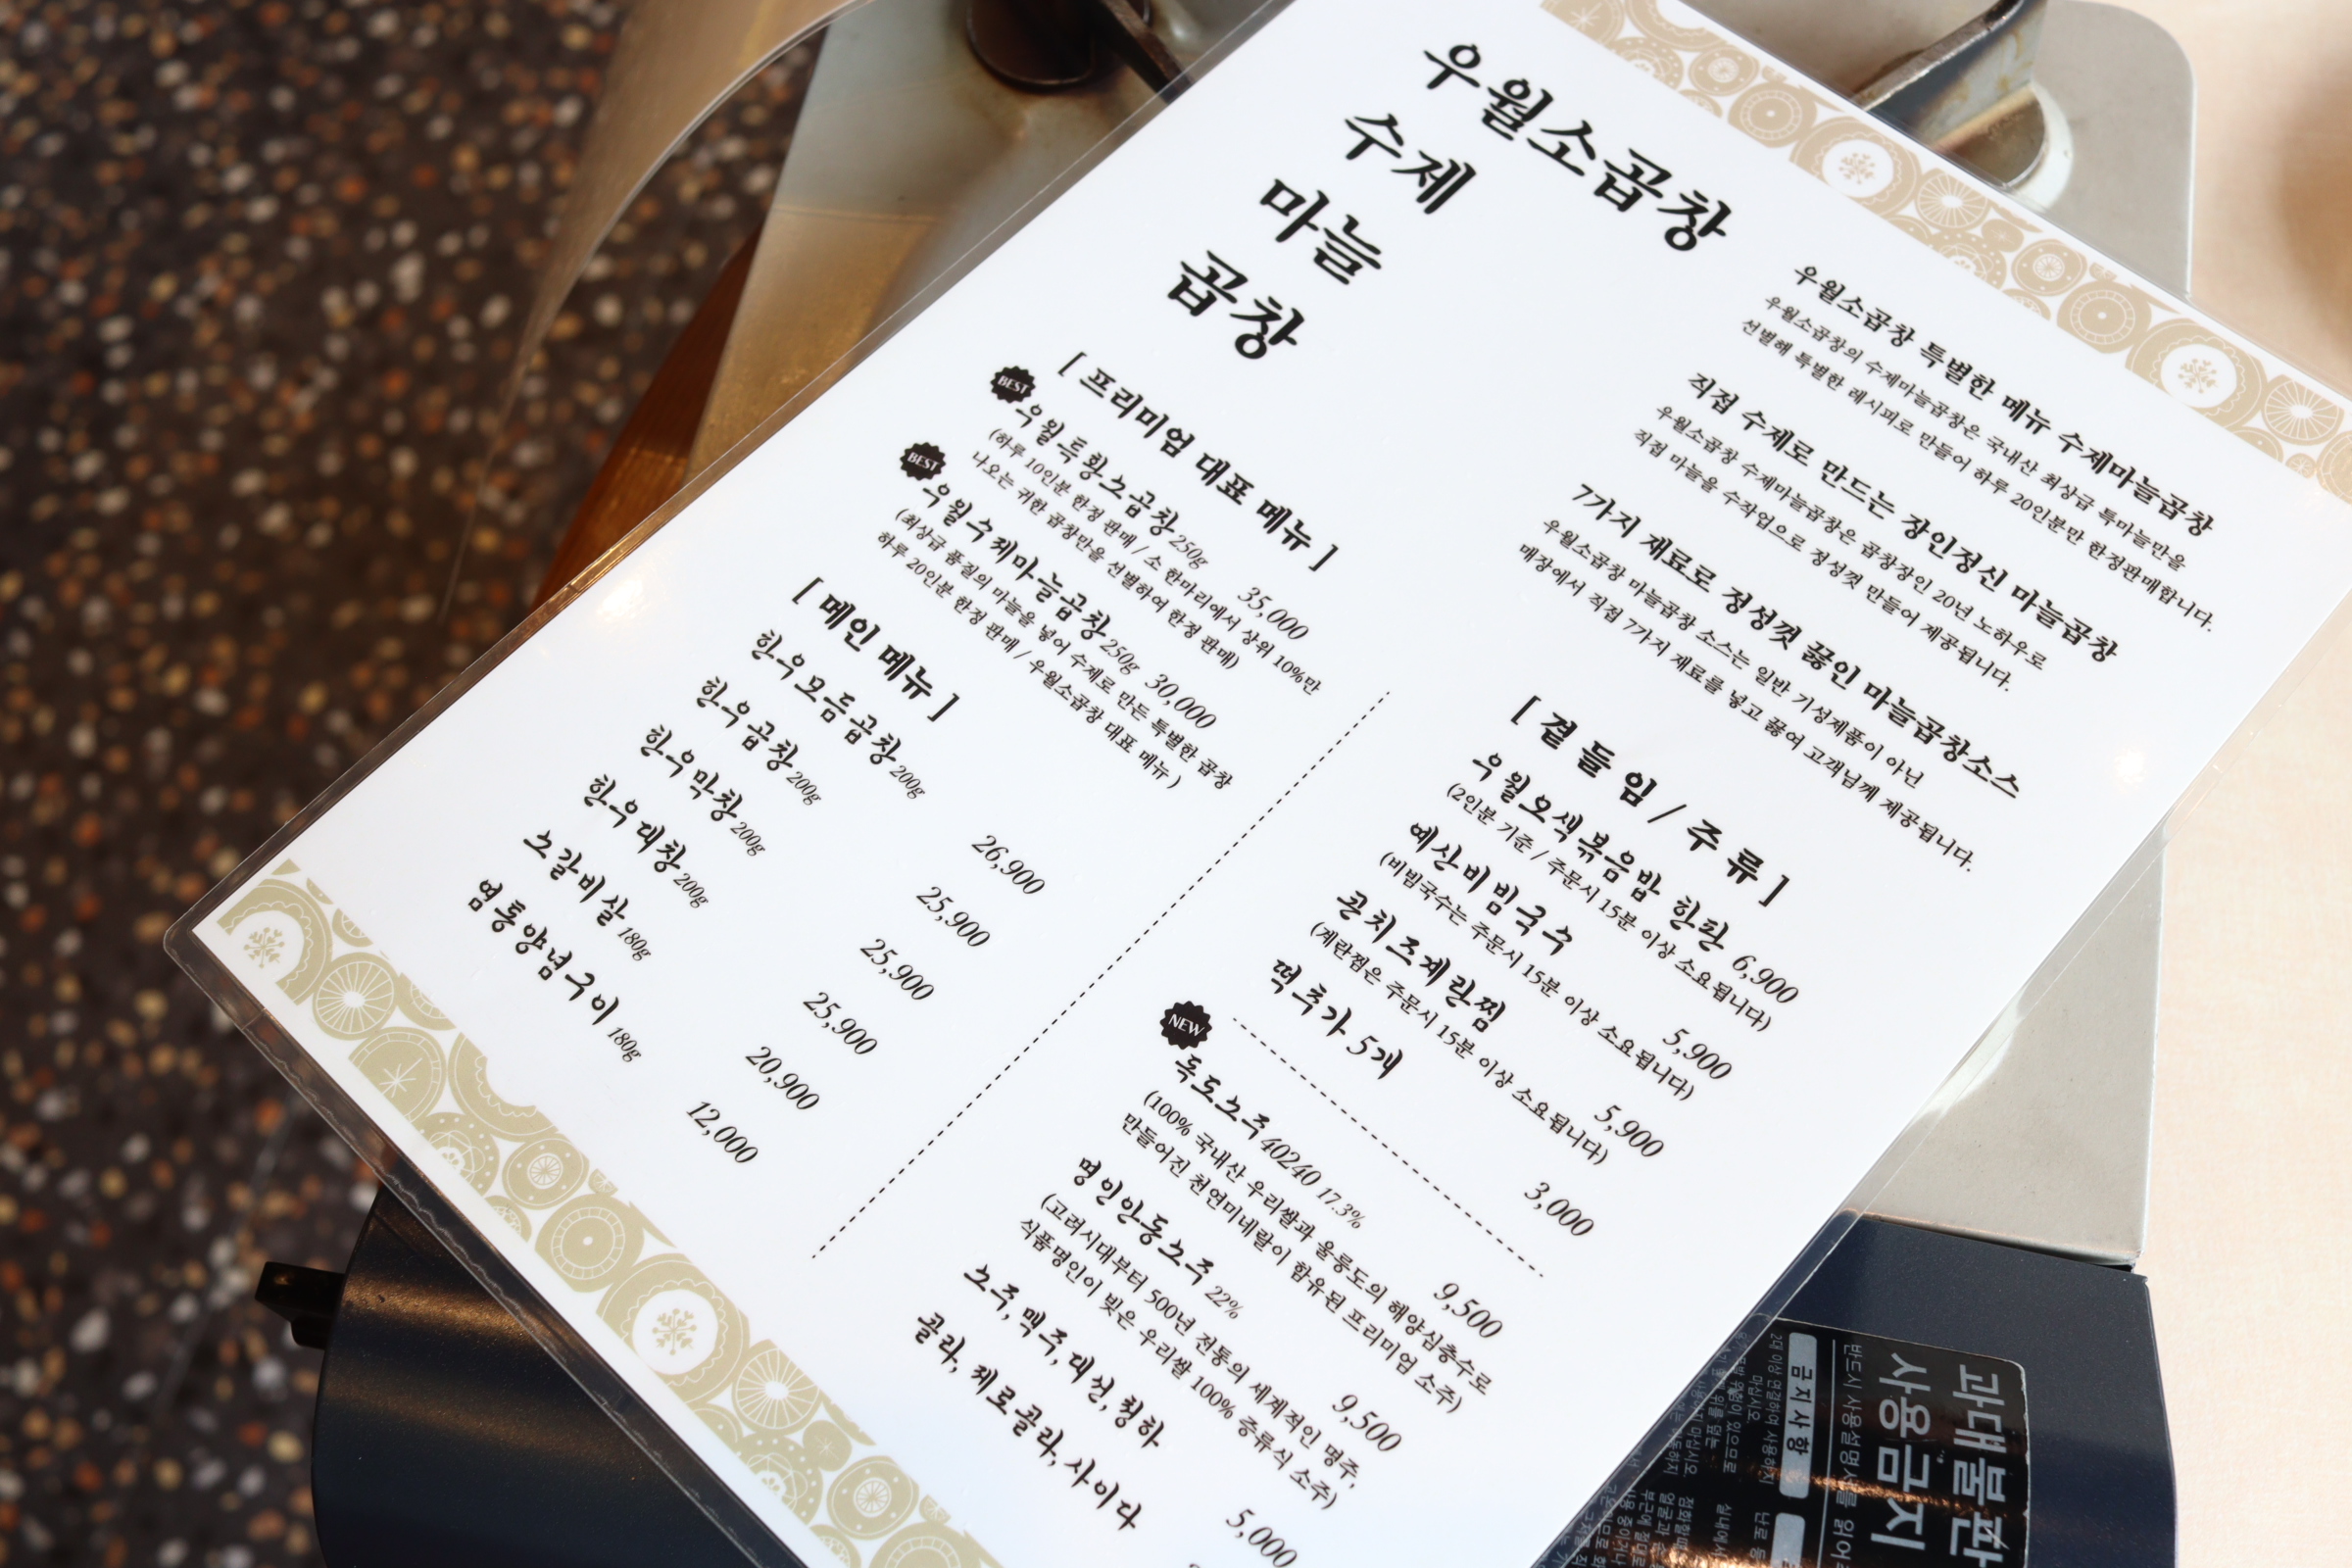 우월소곱창
수제
마늘
곱창
우월소곱창 특별한 메뉴 수제마늘곱창
우월소곱창의 수제마늘곱창은 국내산 최상급 특마늘만을
선별해 특별한 레시피로 만들어 하루 20인분만 한정판매합니다.
직접 수제로 만드는 장인정신 마늘곱창
우월소곱창 수제마늘곱창은 곱창장인 20년 노하우로
직접 마늘을 수작업으로 정성껏 만들어 제공됩니다.
7가지 재료로 정성껏 끓인 마늘곱창소스
우월소곱창 마늘곱창 소스는 일반 기성제품이 아닌
매장에서 직접 7가지 재료를 넣고 끓여 고객님께 제공됩니다.
[ 프리미엄 대표 메뉴 ]
BEST
우월특횡소곱창 250g 35,000
(하루 10인분 한정 판매 / 소 한마리에서 상위 10%만
나오는 귀한 곱창만을 선별하여 한정 판매)
BEST
우월수제마늘곱창 250g 30,000
(최상급 품질의 마늘을 넣어 수제로 만든 특별한 곱창
하루 20인분 한정 판매 / 우월소곱창 대표 메뉴 )
[ 메인 메뉴 ]
한우모듬곱창 200g 26,900
한우곱창 200g 25,900
한우막창 200g 25,900
한우대창 200g 25,900
소갈비살 180g 20,900
염통양념구이 180g 12,000
[ 곁들임 / 주류 ]
우월오색볶음밥 한판 6,900
(2인분 기준 / 주문시 15분 이상 소요됩니다)
예산비빔국수 5,900
(비빔국수는 주문시 15분 이상 소요됩니다)
콘치즈계란찜 5,900
(계란찜은 주문시 15분 이상 소요됩니다)
떡추가 5개 3,000
NEW
독도소주 40240 17.3% 9,500
(100% 국내산 우리쌀과 울릉도의 해양심층수로
만들어진 천연미네랄이 함유된 프리미엄 소주)
명인안동소주 22% 9,500
(고려시대부터 500년 전통의 세계적인 명주,
식품명인이 빚은 우리쌀 100% 증류식 소주)
소주, 맥주, 대선, 청하 5,000
콜라, 제로콜라, 사이다
과대불판
사용금지
반드시 사용설명서를 읽어
금지사항